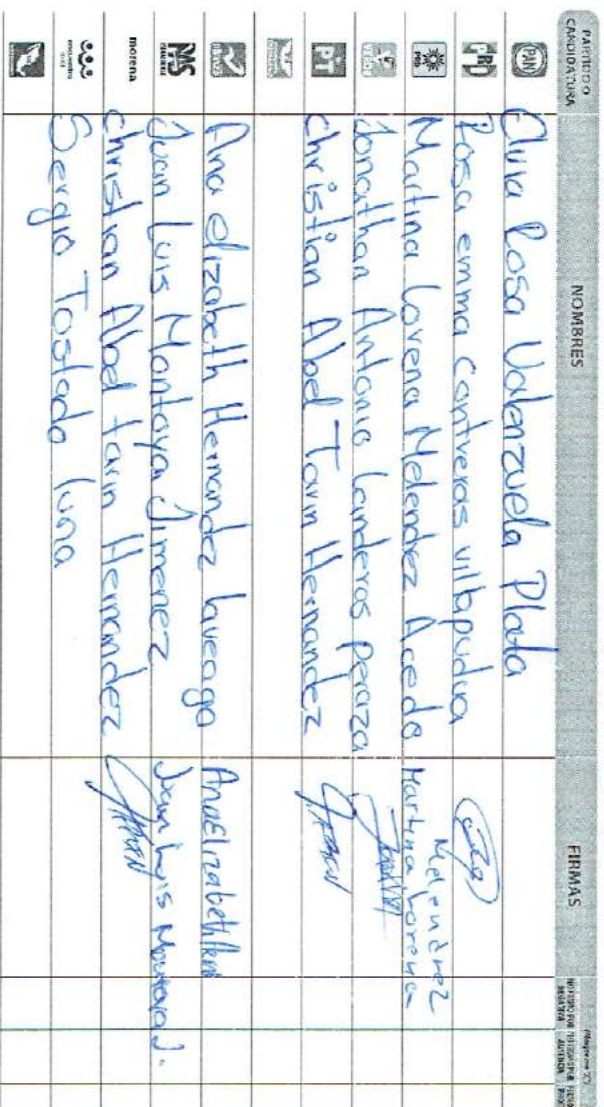 PARTIDO O CANDIDATURA NOMBRES FIRMAS
PAN Elina Rosa Valenzuela Plata
PRD Rosa emma Contreras villapudua
Martina Lorena Melendez Acedo Melendrez Martina Lorena
VERDE Jonathan Antonio Landeros peraza
PT Christian Abel Tarin Hernandez
Ana elizabeth Hernandez laveaga AnaElizabethHern
PAS Juan Luis Montoya Jimenez Juan Luis Montoya J.
morena Christian Abel tarin Hernandez
encuentro Sergio Tostado luna